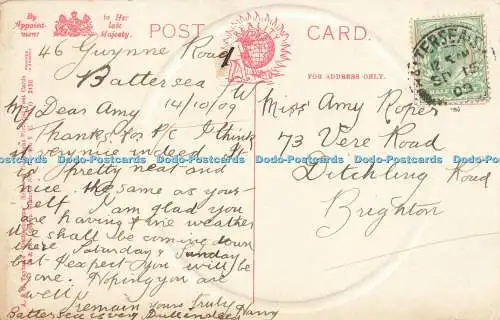 By Appointment
to Her late Majesty.
POST CARD.
FOR ADDRESS ONLY.
BATTERSEA
46 Gwynne Road
Battersea SW
14/10/09
My Dear Amy
Thanks for P/C I think
it very nice indeed. It
is pretty neat and
nice the same as your-
self I am glad you
are having fine weather
We shall be coming down
there Saturday & Sunday
but I expect you will be
gone. Hoping you are
well I
remain yours truly
Harry
Battersea is very Dull
Miss Amy Roper
73 Vere Road
Ditchling Road
Brighton
Dodo-Postcards Dodo-Postcards Dodo-Postcards Dodo-Postcards Dodo-Postcards Dodo-Postcards